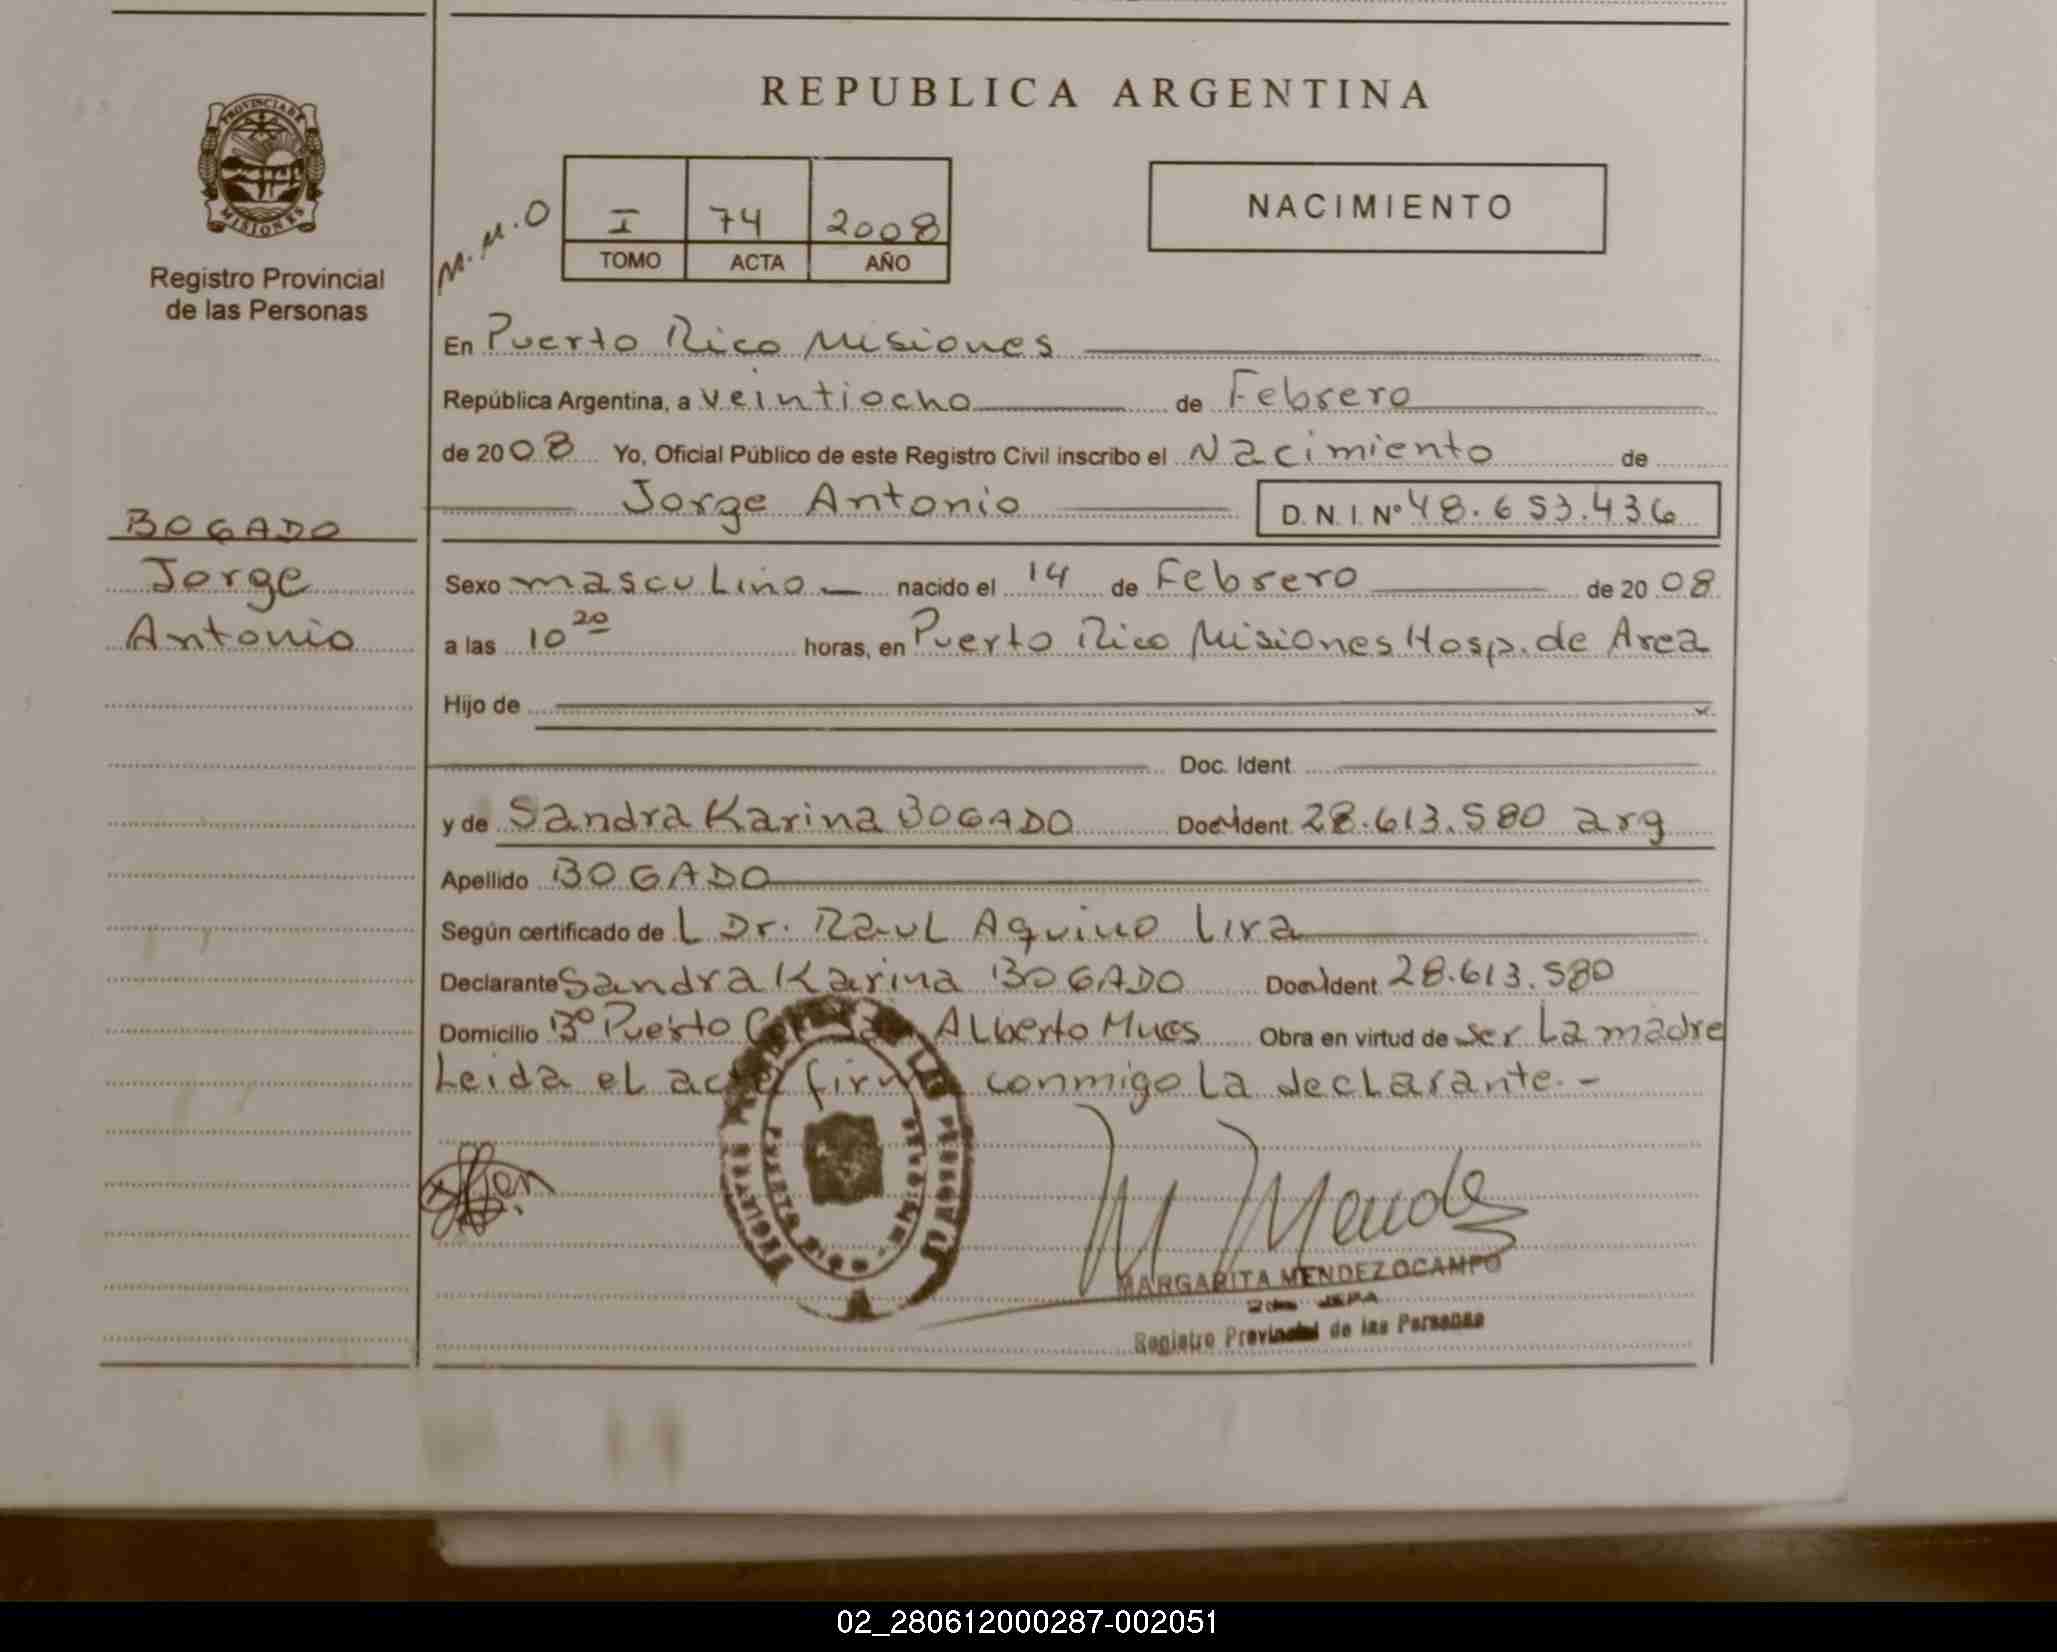 REPUBLICA ARGENTINA
PROVINCIA DE
MISIONES
Registro Provincial
de las Personas
M.M.O
I 74 2008
TOMO ACTA AÑO
NACIMIENTO
En Puerto Rico Misiones
República Argentina, a veintiocho de Febrero
de 2008 Yo, Oficial Público de este Registro Civil inscribo el Nacimiento de
Jorge Antonio D.N.I. Nº 48.653.436
BOGADO
Jorge
Antonio
Sexo masculino nacido el 14 de Febrero de 2008
a las 10 20 horas, en Puerto Rico Misiones Hosp. de Area
Hijo de
Doc. Ident.
y de Sandra Karina BOGADO Doc. Ident. 28.613.580 arg
Apellido BOGADO
Según certificado de L Dr. Raul Aquino Lira
Declarante Sandra Karina BOGADO Doc. Ident. 28.613.580
Domicilio Bº Puerto Alberto Mues Obra en virtud de ser La madre
Leida el acta firma conmigo La declarante.-
PUERTO RICO - MISIONES
M Mende
MARGARITA MENDEZ OCAMPO
Registro Provincial de las Personas
02_280612000287-002051